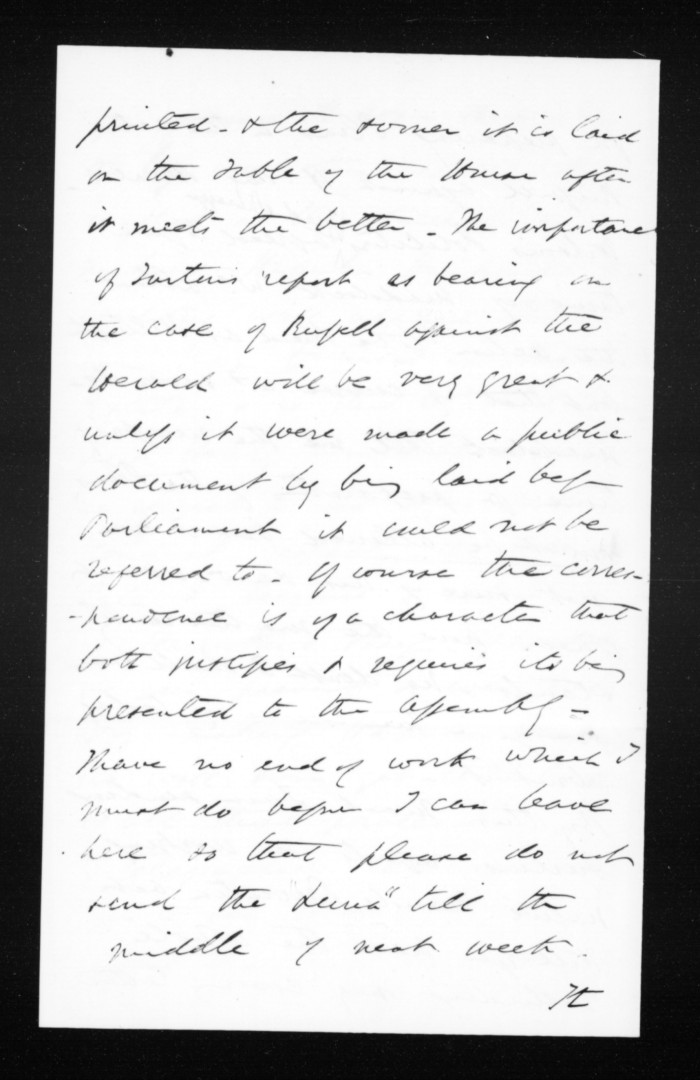 printed - & the sooner it is laid
on the Table of the House after
it meets the better - The importance
of report as bearing on
the case of Russell against the
Herald will be very great &
unless it were made a public
document by being laid before
Parliament it could not be
referred to - Of course the corres-
-pondence is of a character that
both justifies & requires its being
presented to the Assembly -
I have no end of work which I
must do before I can leave
here so that please do not
send the "Luna" till the
middle of next week.